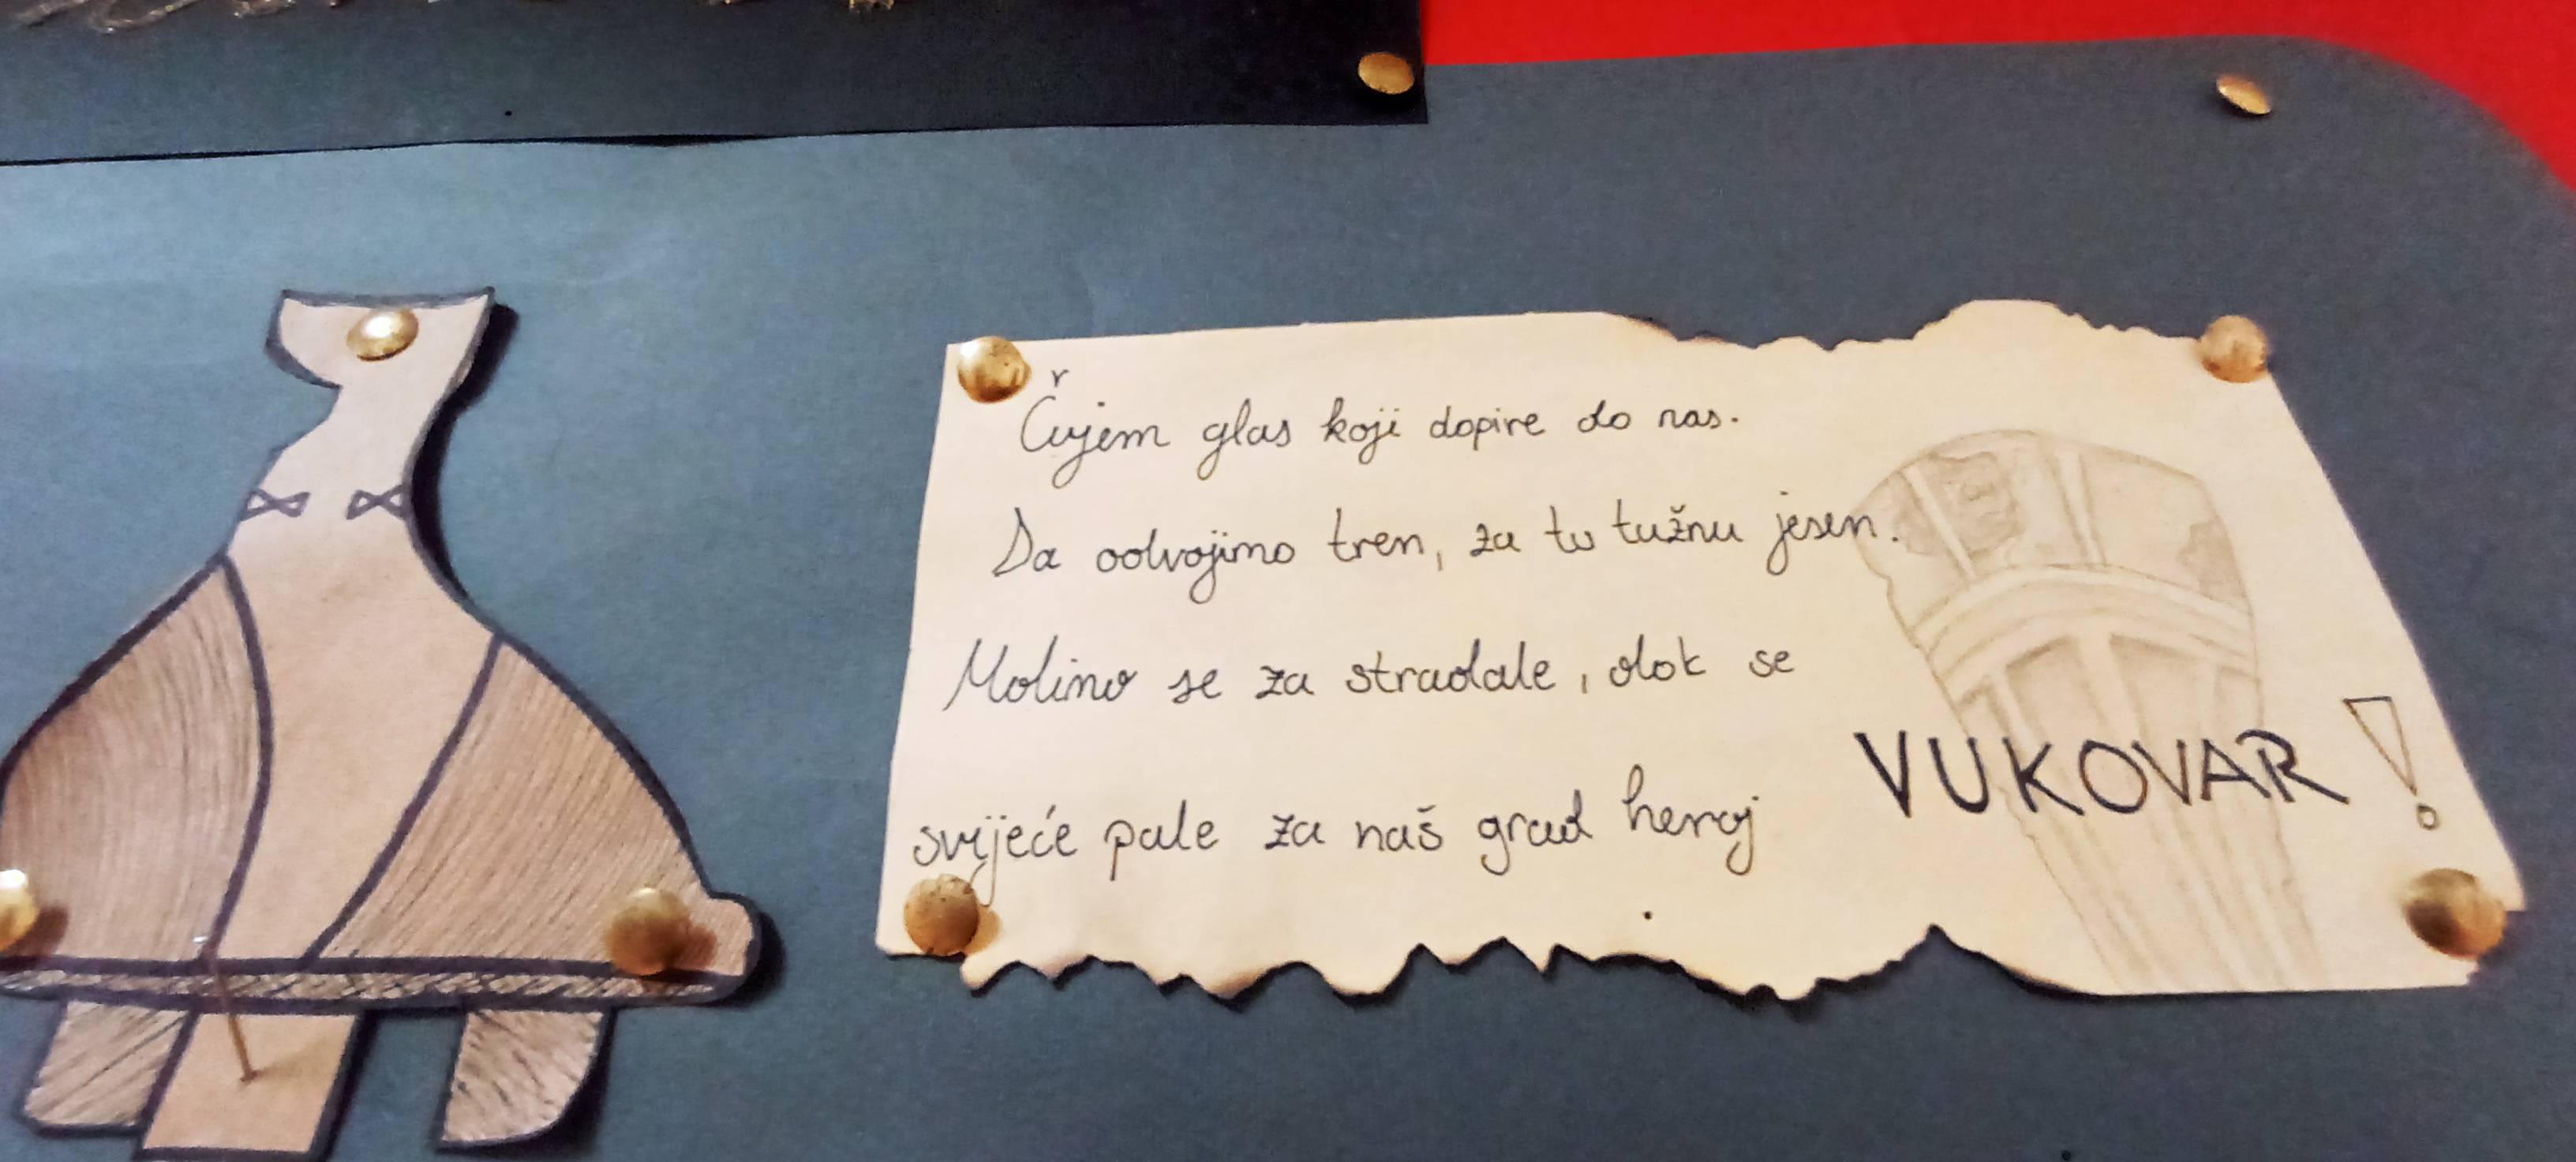 Čujem glas koji dopire do nas.
Da odvojimo tren, za tu tužnu jesen.
Molimo se za stradale, dok se
svijeće pale za naš grad heroj VUKOVAR!